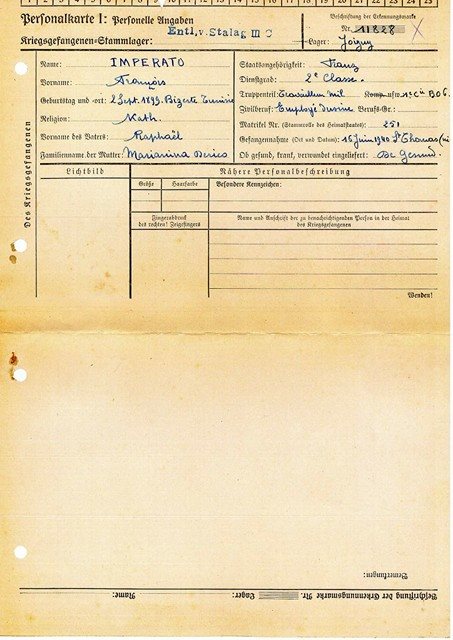 1 2 3 4 5 6 7 8 9 10 11 12 13 14 15 16 17 18 19 20 21 22 23 24 25
Personalkarte I: Personelle Angaben
Beschriftung der Erkennungsmarke
Kriegsgefangenen-Stammlager: Entl.v.Stalag III C
Nr. 11828 X
Lager: Joigny
Des Kriegsgefangenen
Name: IMPERATO
Vorname: François
Geburtstag und -ort: 2 Sept. 1899. Bizerte Tunisie
Religion: Kath.
Vorname des Vaters: Raphaël
Familienname der Mutter: Marianina
Staatsangehörigkeit: Franz
Dienstgrad: 2e Classe.
Truppenteil: Komp. usw.
Zivilberuf: Employé Usine Berufs-Gr.:
Matrikel Nr. (Stammrolle des Heimatstaates): 251
Gefangennahme (Ort und Datum): 15 Juin 1940 St Thomas
Ob gesund, krank, verwundet eingeliefert:
Lichtbild
Nähere Personalbeschreibung
Größe
Haarfarbe
Besondere Kennzeichen:
Fingerabdruck
des rechten! Zeigefingers
Name und Anschrift der zu benachrichtigenden Person in der Heimat
des Kriegsgefangenen
Wenden!
Bemerkungen:
Name:
Beschriftung der Erkennungsmarke Nr.
Lager: